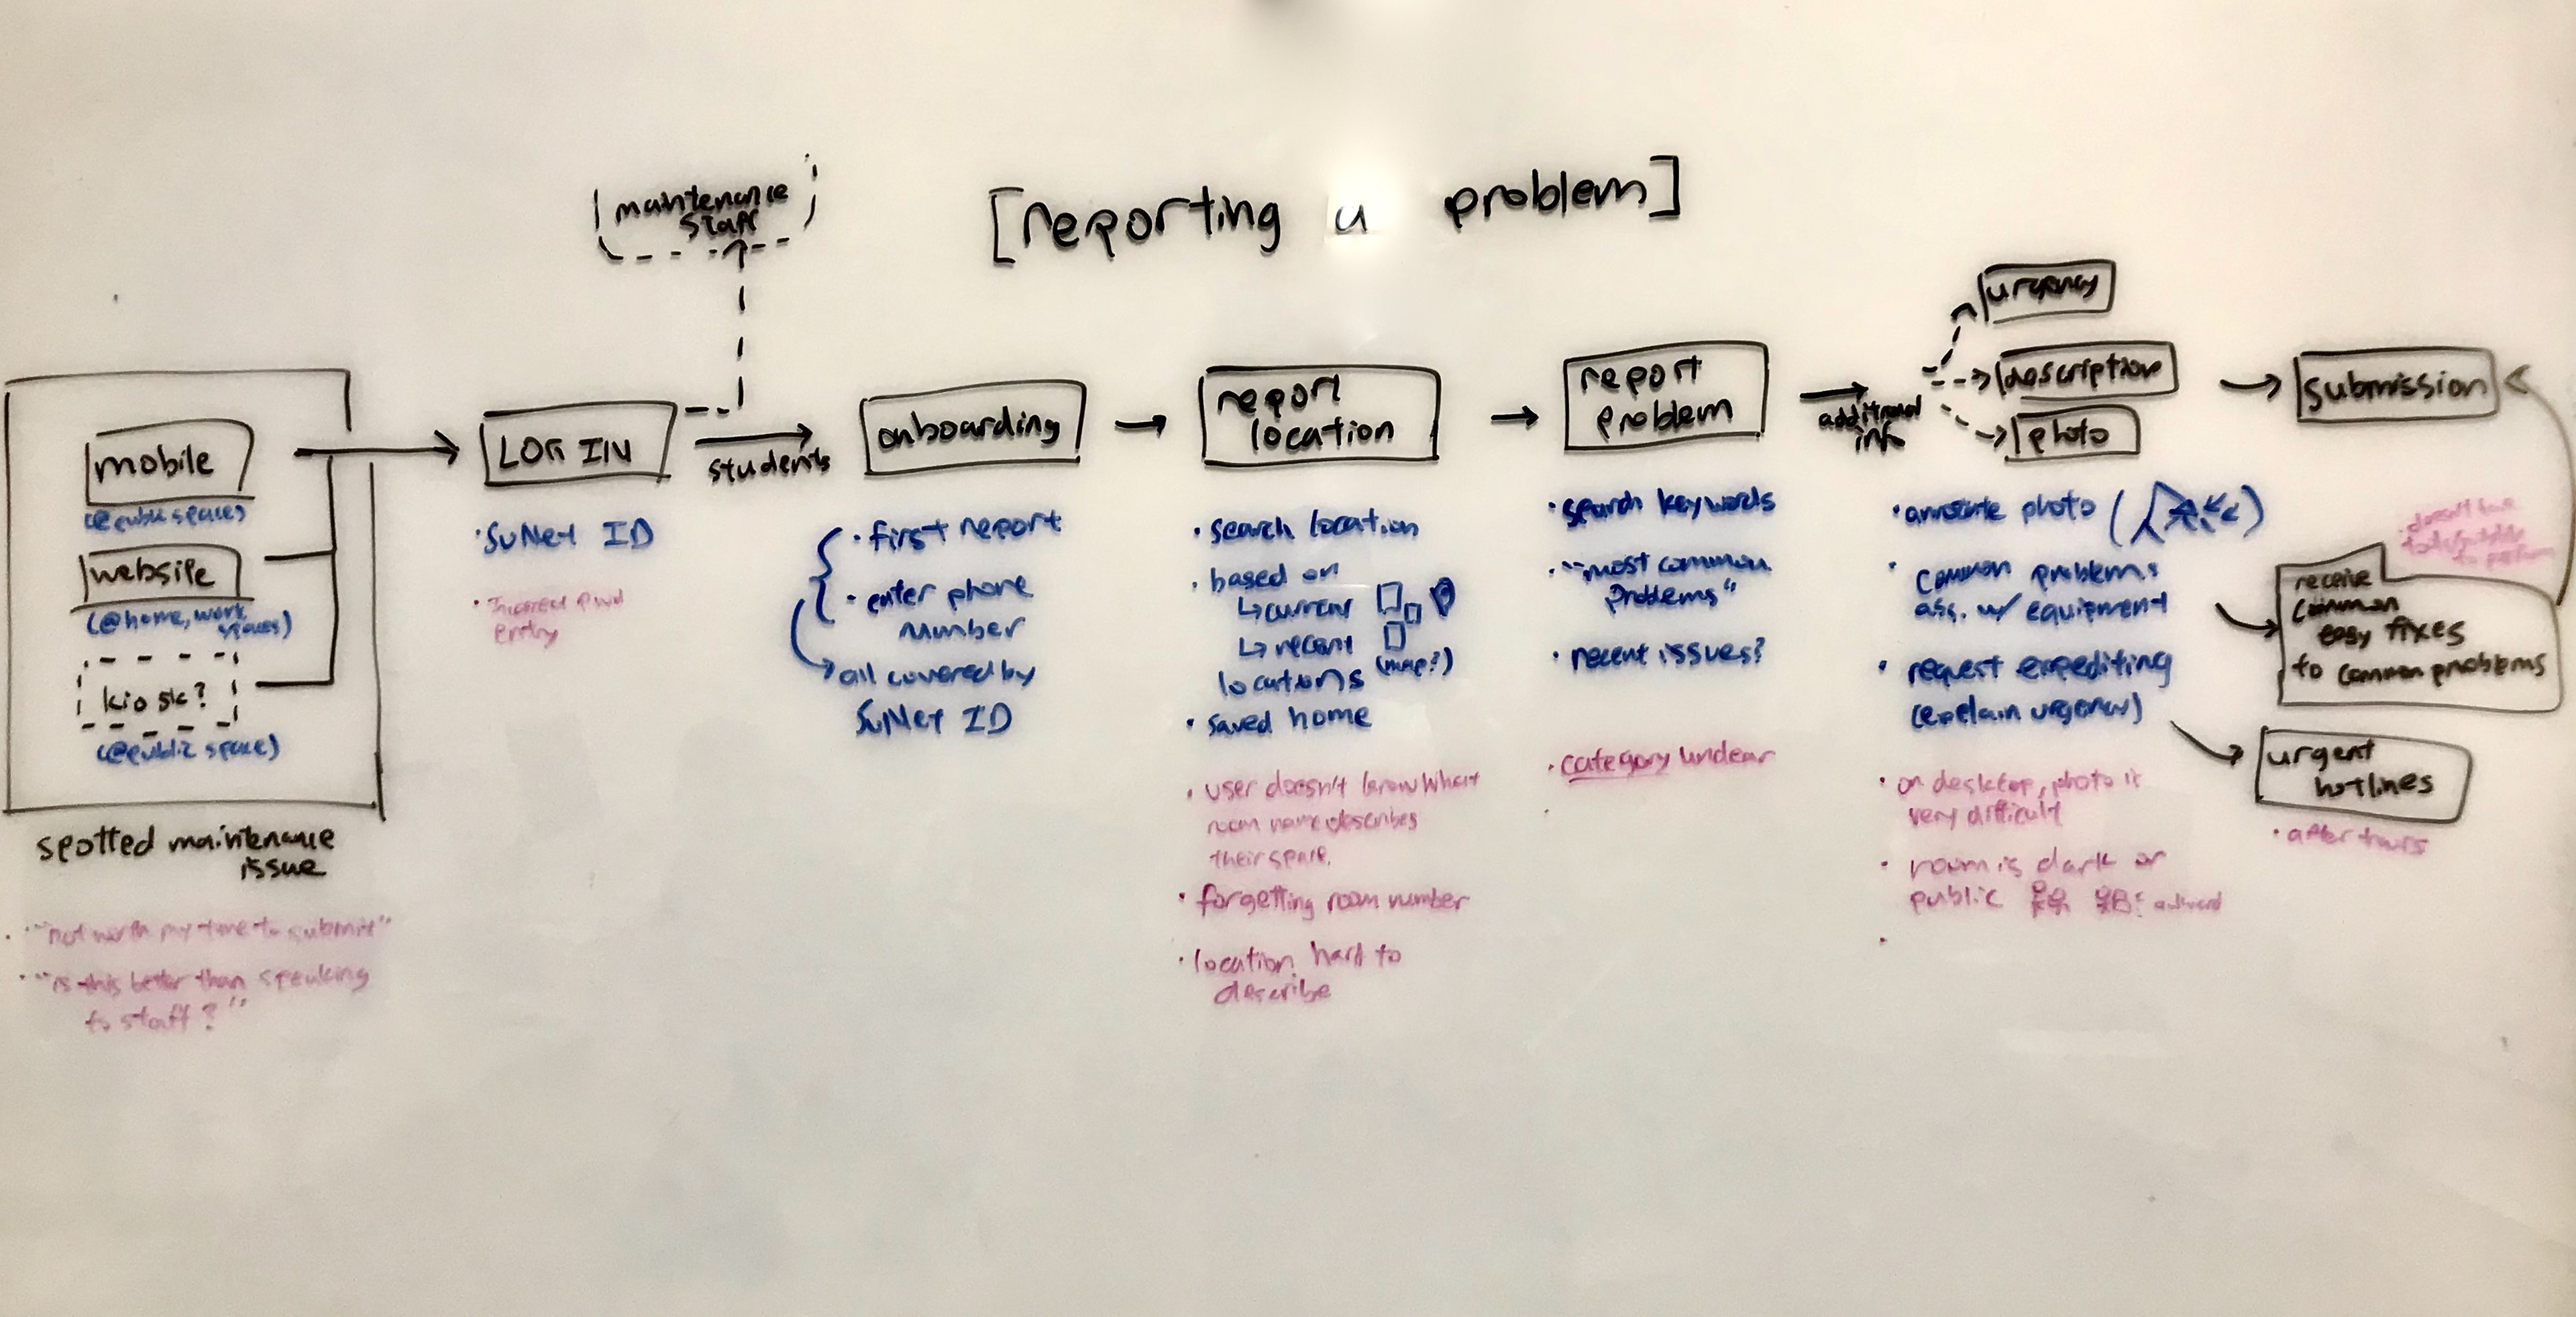 [reporting a problem]
maintenance
staff
mobile
(@public spaces)
website
(@home, work
spaces)
kiosk?
(@public space)
spotted maintenance
issue
"not worth my time to submit"
"is this better than speaking
to staff?"
LOG IN
• SuNet ID
• Incorrect pwd
entry
students
onboarding
• first report
• enter phone
number
all covered by
SuNet ID
report
location
• search location
• based on
↳ current
↳ recent
locations (map?)
• saved home
• user doesn't know what
room name describes
their space.
• forgetting room number
• location hard to
describe
report
problem
• search keywords
• "most common
problems"
• recent issues?
• category unclear
additional
info
urgency
description
photo
• annotate photo
• common problems
ass. w/ equipment
• request expediting
(explain urgency)
• on desktop, photo is
very difficult
• room is dark or
public awkward
submission
• doesn't have
receive
common
easy fixes
to common problems
urgent
hotlines
• after hours